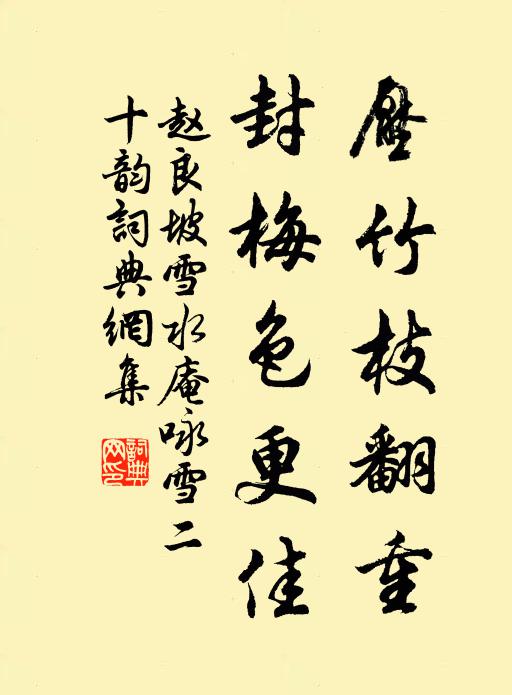 壓竹枝翻重
封梅色更佳
赵良坡雪水庵咏雪二
十韵詞典網集
詞典
网印